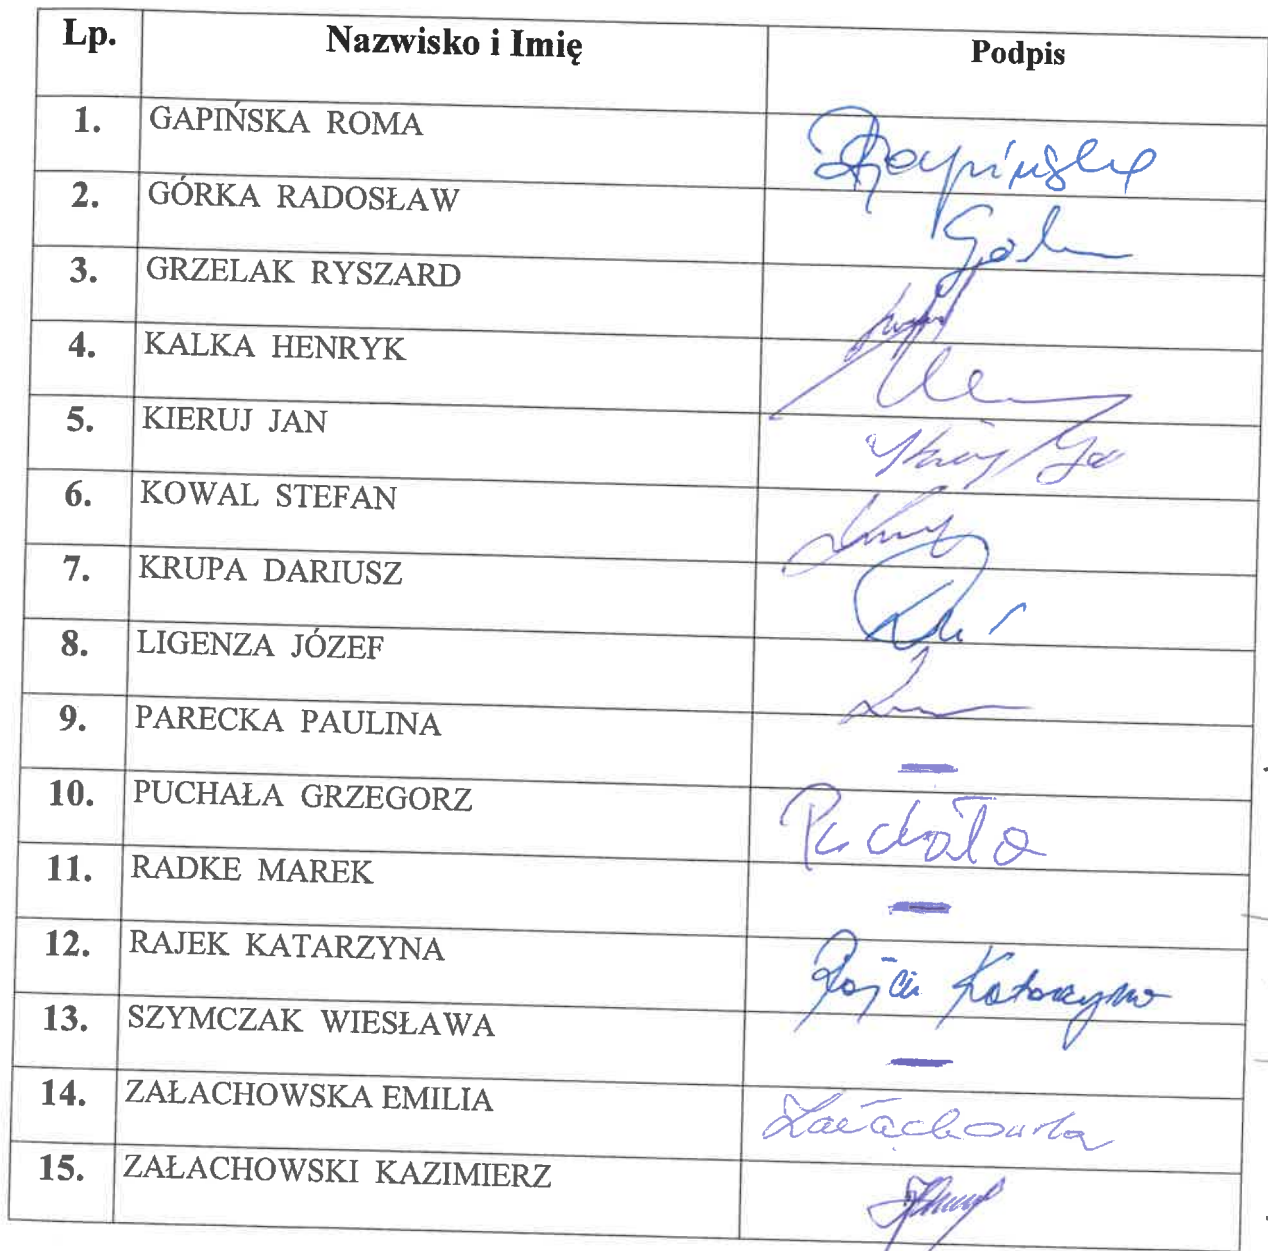 Lp. Nazwisko i Imię Podpis
1. GAPIŃSKA ROMA Gapińska
2. GÓRKA RADOSŁAW
3. GRZELAK RYSZARD
4. KALKA HENRYK
5. KIERUJ JAN
6. KOWAL STEFAN
7. KRUPA DARIUSZ
8. LIGENZA JÓZEF
9. PARECKA PAULINA —
10. PUCHAŁA GRZEGORZ Puchała
11. RADKE MAREK —
12. RAJEK KATARZYNA Katarzyna
13. SZYMCZAK WIESŁAWA —
14. ZAŁACHOWSKA EMILIA Załachowska
15. ZAŁACHOWSKI KAZIMIERZ